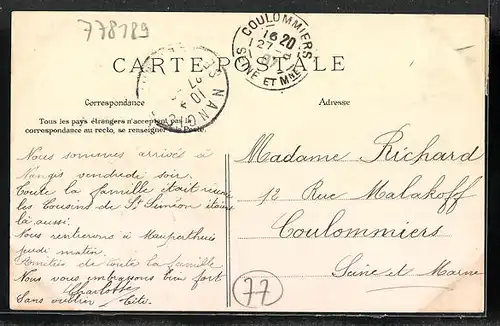 778189
COULOMMIERS
16 20
27-8
07
SEINE ET MNE
NANGIS
CARTE POSTALE
Correspondance
Adresse
Tous les pays étrangers n'acceptent pas la
correspondance au recto, se renseigner à la Poste.
Nous sommes arrivés à
Nangis vendredi soir.
Toute la famille était réunie
les Cousins de St Siméon étaient
là aussi.
Nous rentrerons à Mauperthuis
jeudi matin.
Amitiés de toute la famille.
Nous vous embrassons bien fort
Charlotte
Sans oublier Tite.
Madame Richard
12 Rue Malakoff
Coulommiers
Seine et Marne
77